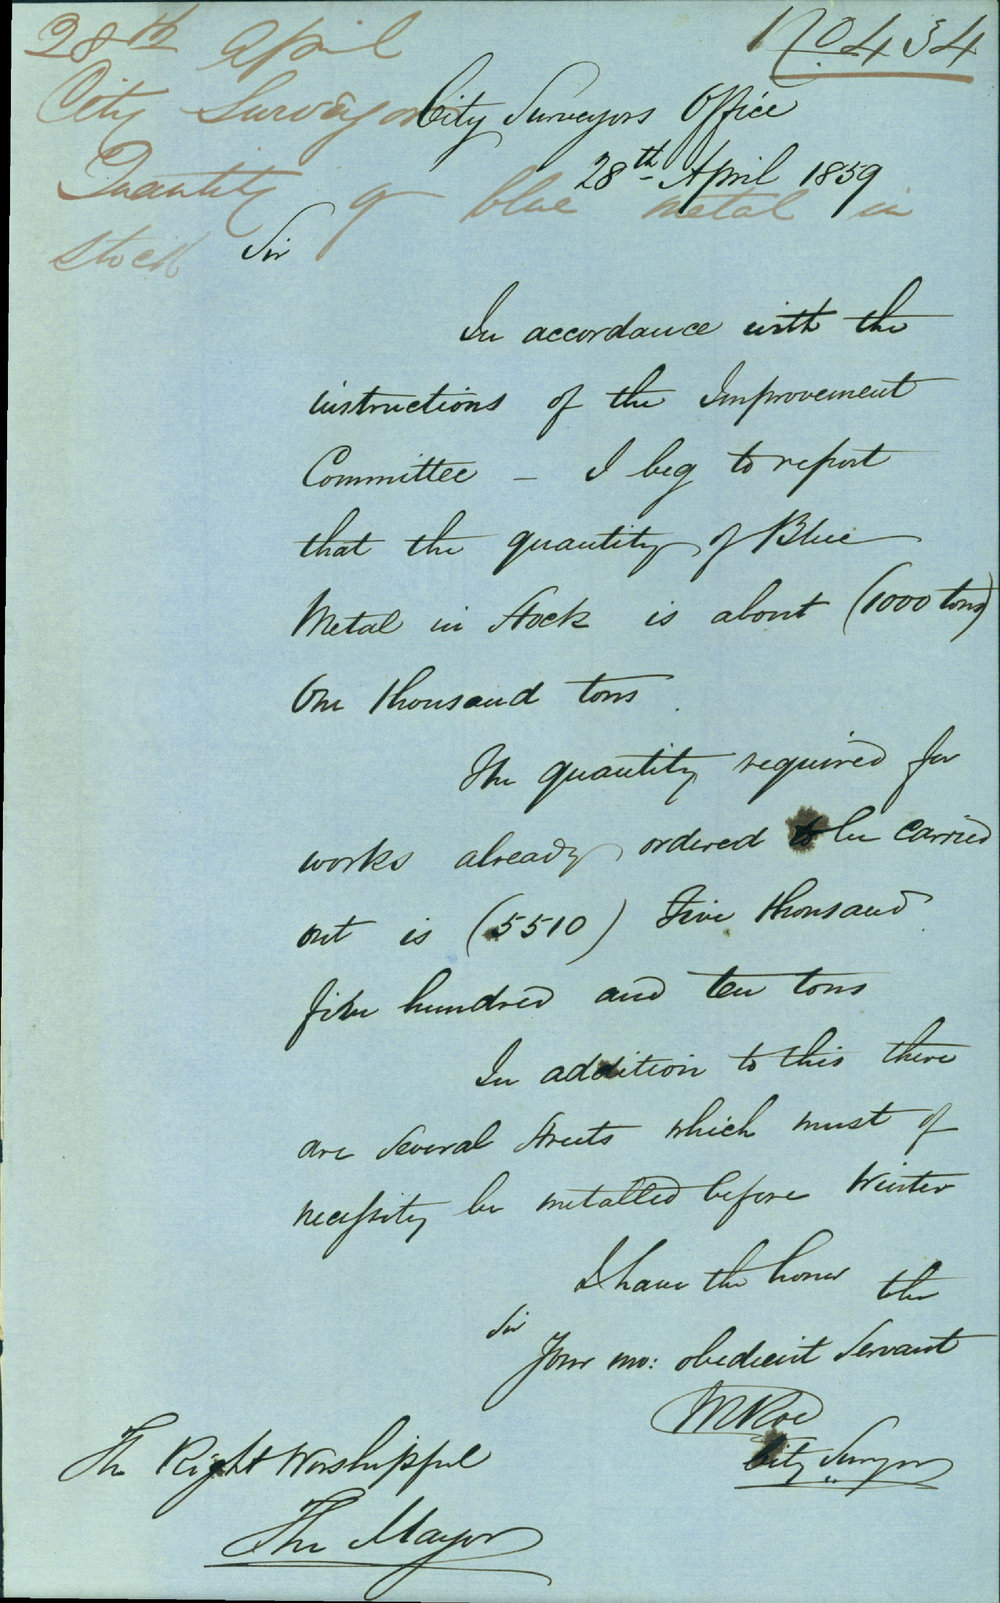 28th April
No 434
City Surveyor
City Surveyors Office
28th April 1859
Quantity of blue metal in
stock
Sir
In accordance with the
instructions of the Improvement
Committee – I beg to report
that the quantity of Blue
Metal in Stock is about (1000 tons)
One thousand tons.
The quantity required for
works already ordered to be carried
out is (5510) Five thousand
five hundred and ten tons
In addition to this there
are several streets which must of
necessity be metalled before Winter
I have the honor the
Sir
Your mo: obedient Servant
City Surveyor
The Right Worshipful
The Mayor